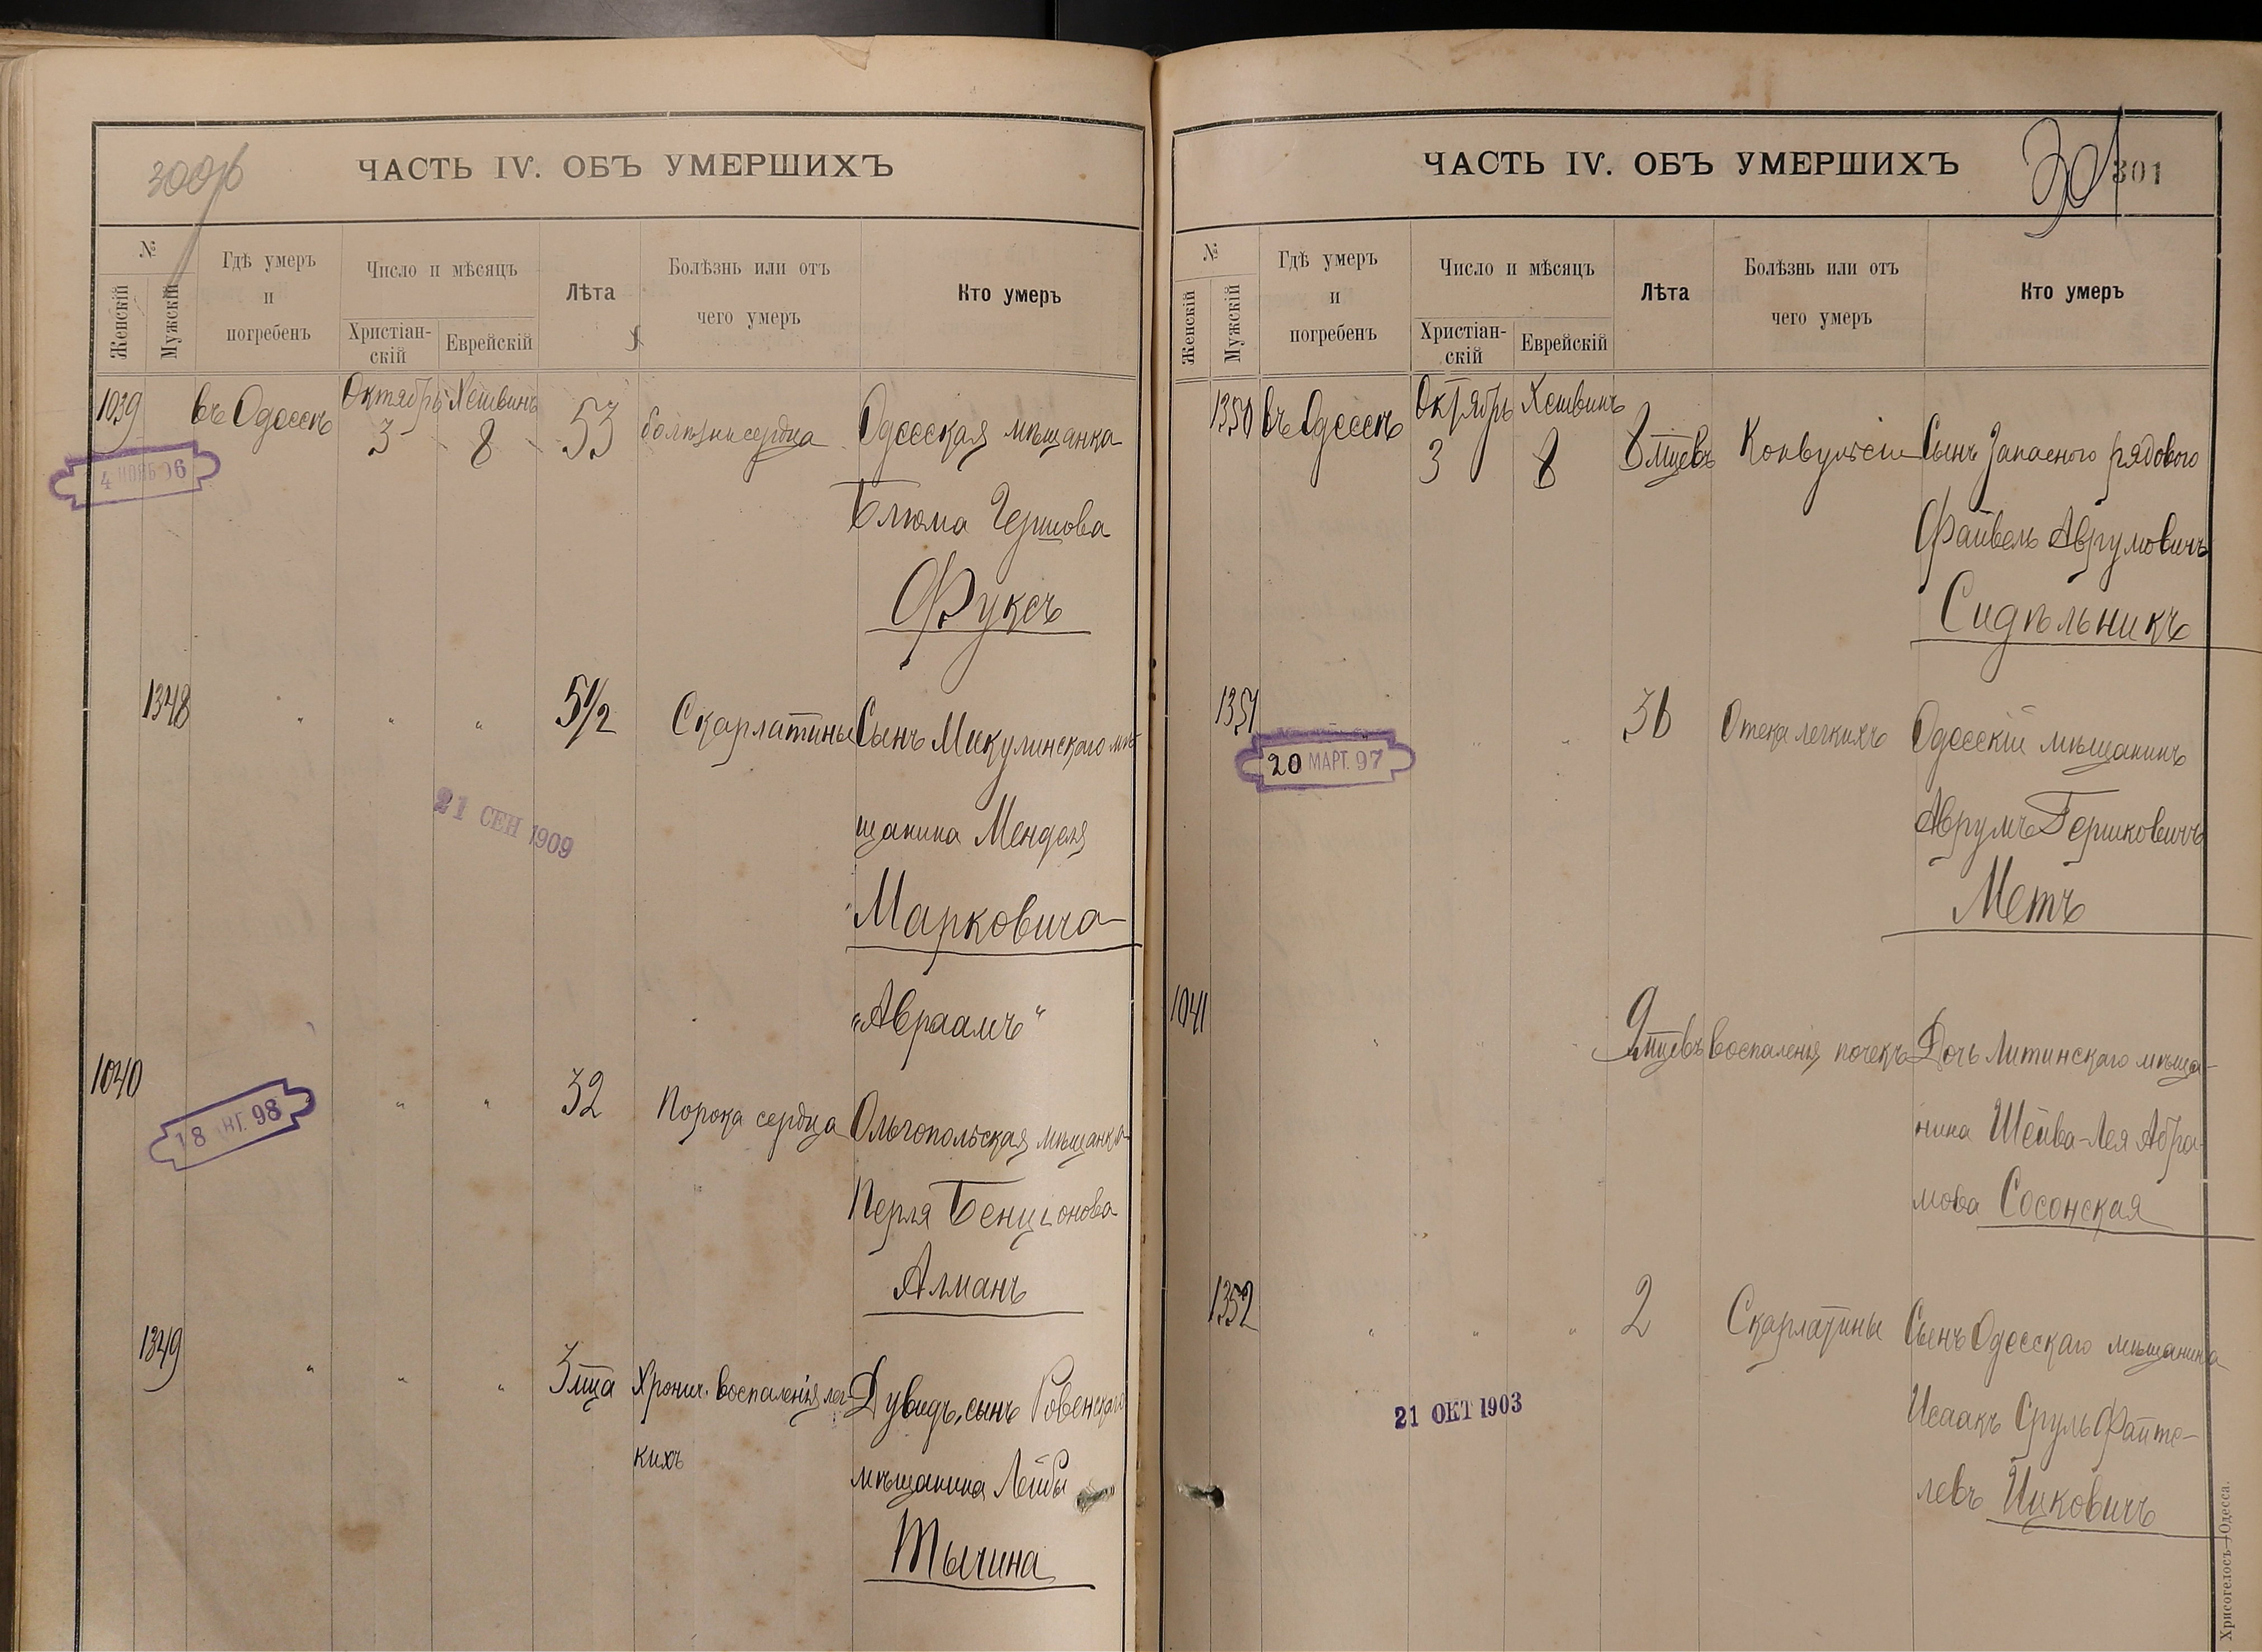 300 об
ЧАСТЬ IV. ОБЪ УМЕРШИХЪ
№
Женскій
Мужскій
Гдѣ умеръ
и
погребенъ
Число и мѣсяцъ
Христіан-
скій
Еврейскій
Лѣта
Болѣзнь или отъ
чего умеръ
Кто умеръ
1039
въ Одессѣ
Октябрь
3
Хешвинъ
8
53
болѣзни сердца
Одесская мѣщанка
Блюма Гершова
Фуксъ
4 НОЯБ 96
1348
" " "
5 1/2
Скарлатины
Сынъ Микулинскаго мѣ-
щанина Менделя
Марковича
"Авраамъ"
21 СЕН 1909
1040
" "
32
Порока сердца
Ольгопольская мѣщанка
Перля Бенціонова
Алманъ
18 АВГ. 98
1349
" " "
3 мца
Хронич. воспаленія лег-
кихъ
Дувидъ, сынъ Ровенскаго
мѣщанина Лейбы
Тычина
ЧАСТЬ IV. ОБЪ УМЕРШИХЪ
301
301
№
Женскій
Мужскій
Гдѣ умеръ
и
погребенъ
Число и мѣсяцъ
Христіан-
скій
Еврейскій
Лѣта
Болѣзнь или отъ
чего умеръ
Кто умеръ
1350
въ Одессѣ
Октябрь
3
Хешвинъ
8
8 мцевъ
Конвульсіи
Сынъ Запасного рядового
Файвель Аврумовичъ
Сидѣльникъ
1351
" "
36
Отека легкихъ
Одесскій мѣщанинъ
Аврумъ Гершковичъ
Метъ
20 МАРТ. 97
1041
" "
9 мцевъ
воспаленія почекъ
Дочь Литинскаго мѣща-
нина Шейва-Лея Абра-
мова Сосонская
1352
" " "
2
Скарлатины
Сынъ Одесскаго мѣщанина
Исаакъ Сруль Файте-
левъ Ицковичъ
21 ОКТ 1903
Хрисогелосъ—Одесса.